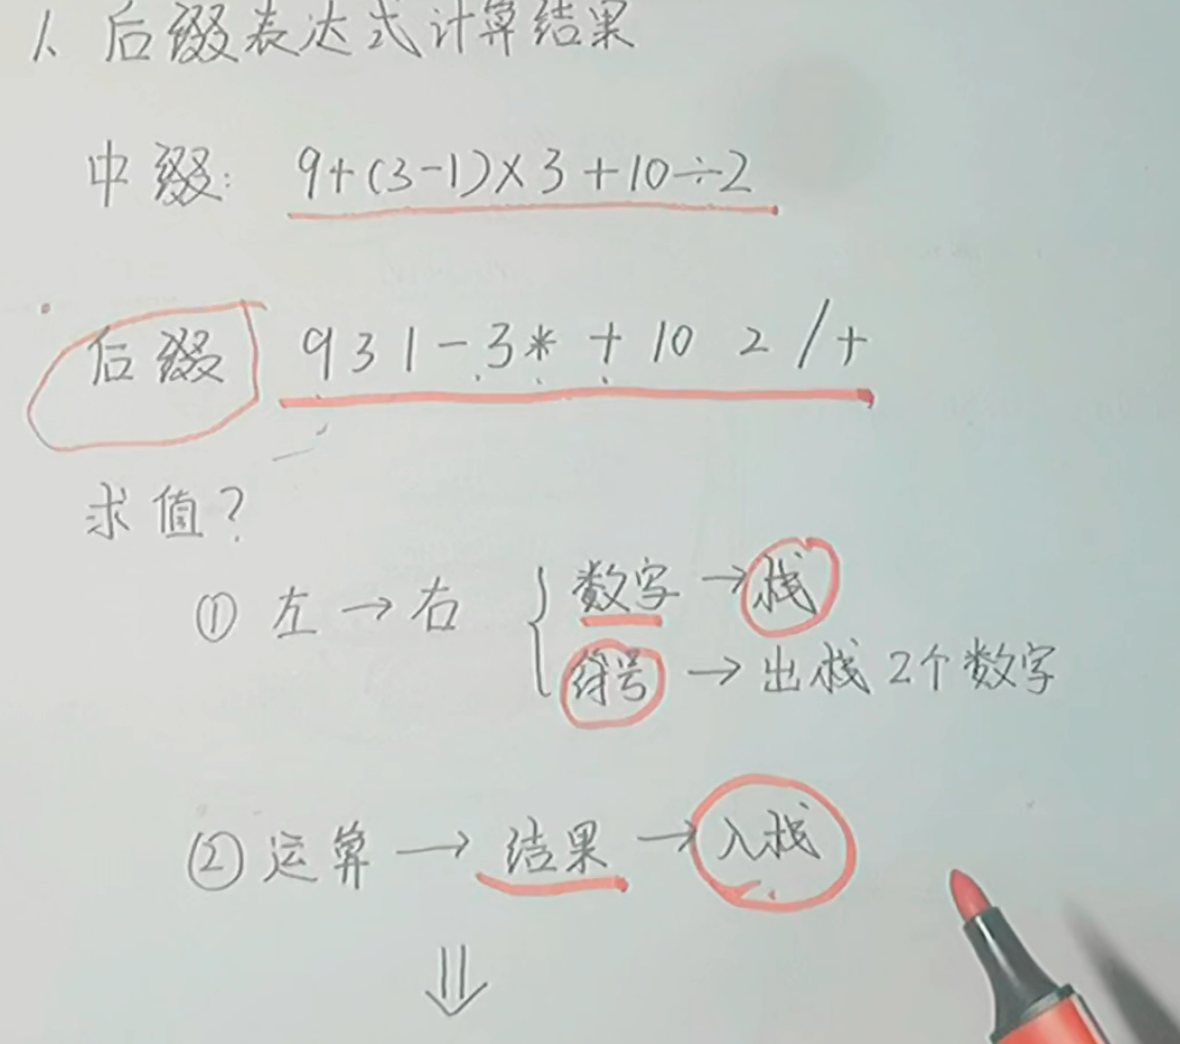 1、后缀表达式计算结果
中缀: 9+(3-1)×3+10÷2
后缀 9 3 1 - 3 * + 10 2 / +
求值?
① 左→右 { 数字→栈
符号→出栈2个数字
② 运算→结果→入栈
⇓